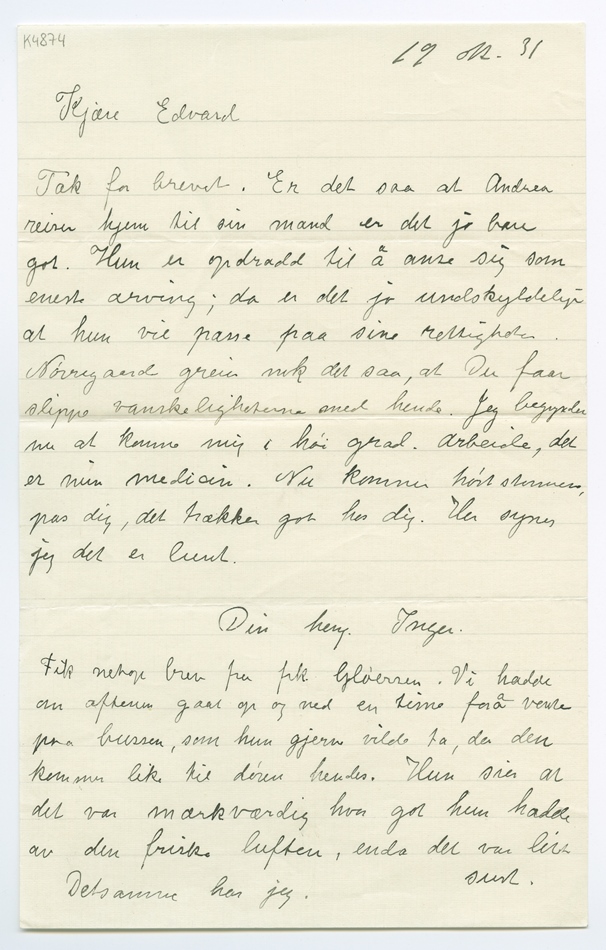 K4874
19 ok. 31
Kjære Edvard
Tak for brevet. Er det saa at Andrea
reiser hjem til sin mand er det jo bare
got. Hun er opdradd til å anse sig som
eneste arving; da er det jo undskyldelig
at hun vil passe paa sine rettigheter.
Nørregaard greier nok det saa, at Du faar
slippe vanskelighetene med hende. Jeg begynder
nu at komme mig i høi grad. Arbeide, det
er min medicin. Nu kommer høststormene,
pas dig, det trækker got hos dig. Her synes
jeg det er lunt.
Din heng. Inger.
Fik netop brev fra frk Gløersen. Vi hadde
om aftenen gaat op og ned en time forå vente
paa bussen, som hun gjerne vilde ta, da den
kommer like til døren hendes. Hun sier at
det var mærkværdig hvor got hun hadde
av den friske luften, enda det var litt
surt.
Detsamme har jeg.